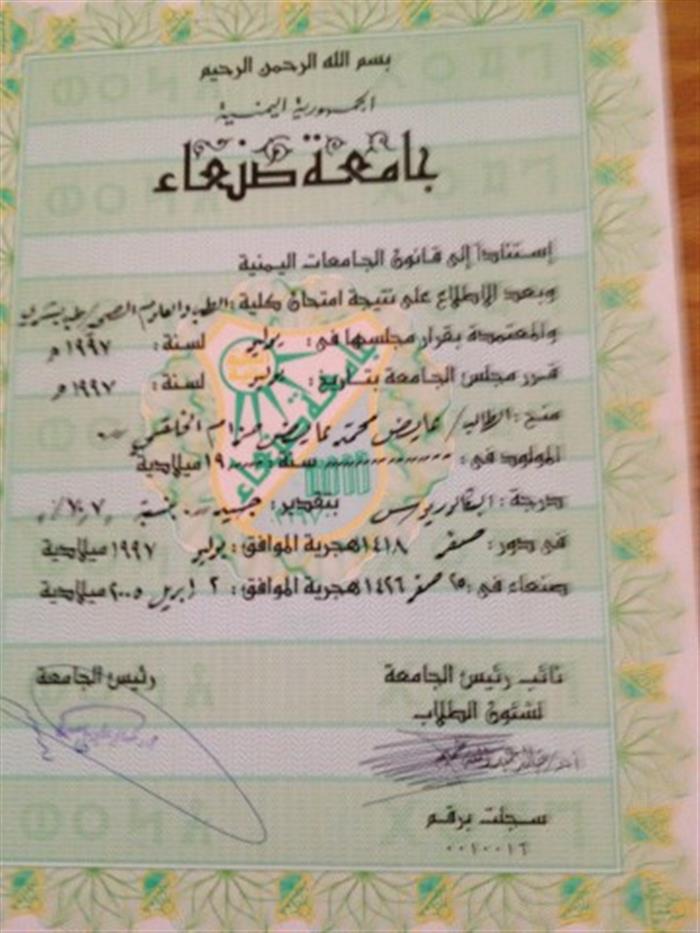 بسم الله الرحمن الرحيم
الجمهورية اليمنية
جامعة صنعاء
إستناداً إلى قانون الجامعات اليمنية
وبعد الإطلاع على نتيجة امتحان كلية : الطب والعلوم الصحية / طب بشري
والمعتمدة بقرار مجلسها فى : يوليو لسنة : ١٩٩٧ م
قرر مجلس الجامعة بتاريخ : يوليو لسنة : ١٩٩٧ م
منح : الطالب / عايض محمد عايض حزام
المولود فى : سنة : ١٩ ميلادية
درجة : البكالوريوس بتقدير : جيد بنسبة
فى دور : صفر ١٤١٨ هجرية الموافق : يوليو ١٩٩٧ ميلادية
صنعاء فى : ٢٥ صفر ١٤٢٦ هجرية الموافق : ٢ ابريل ٢٠٠٥ ميلادية
نائب رئيس الجامعة
لشئون الطلاب
رئيس الجامعة
سجلت برقم
٠٠١٠٠١٦